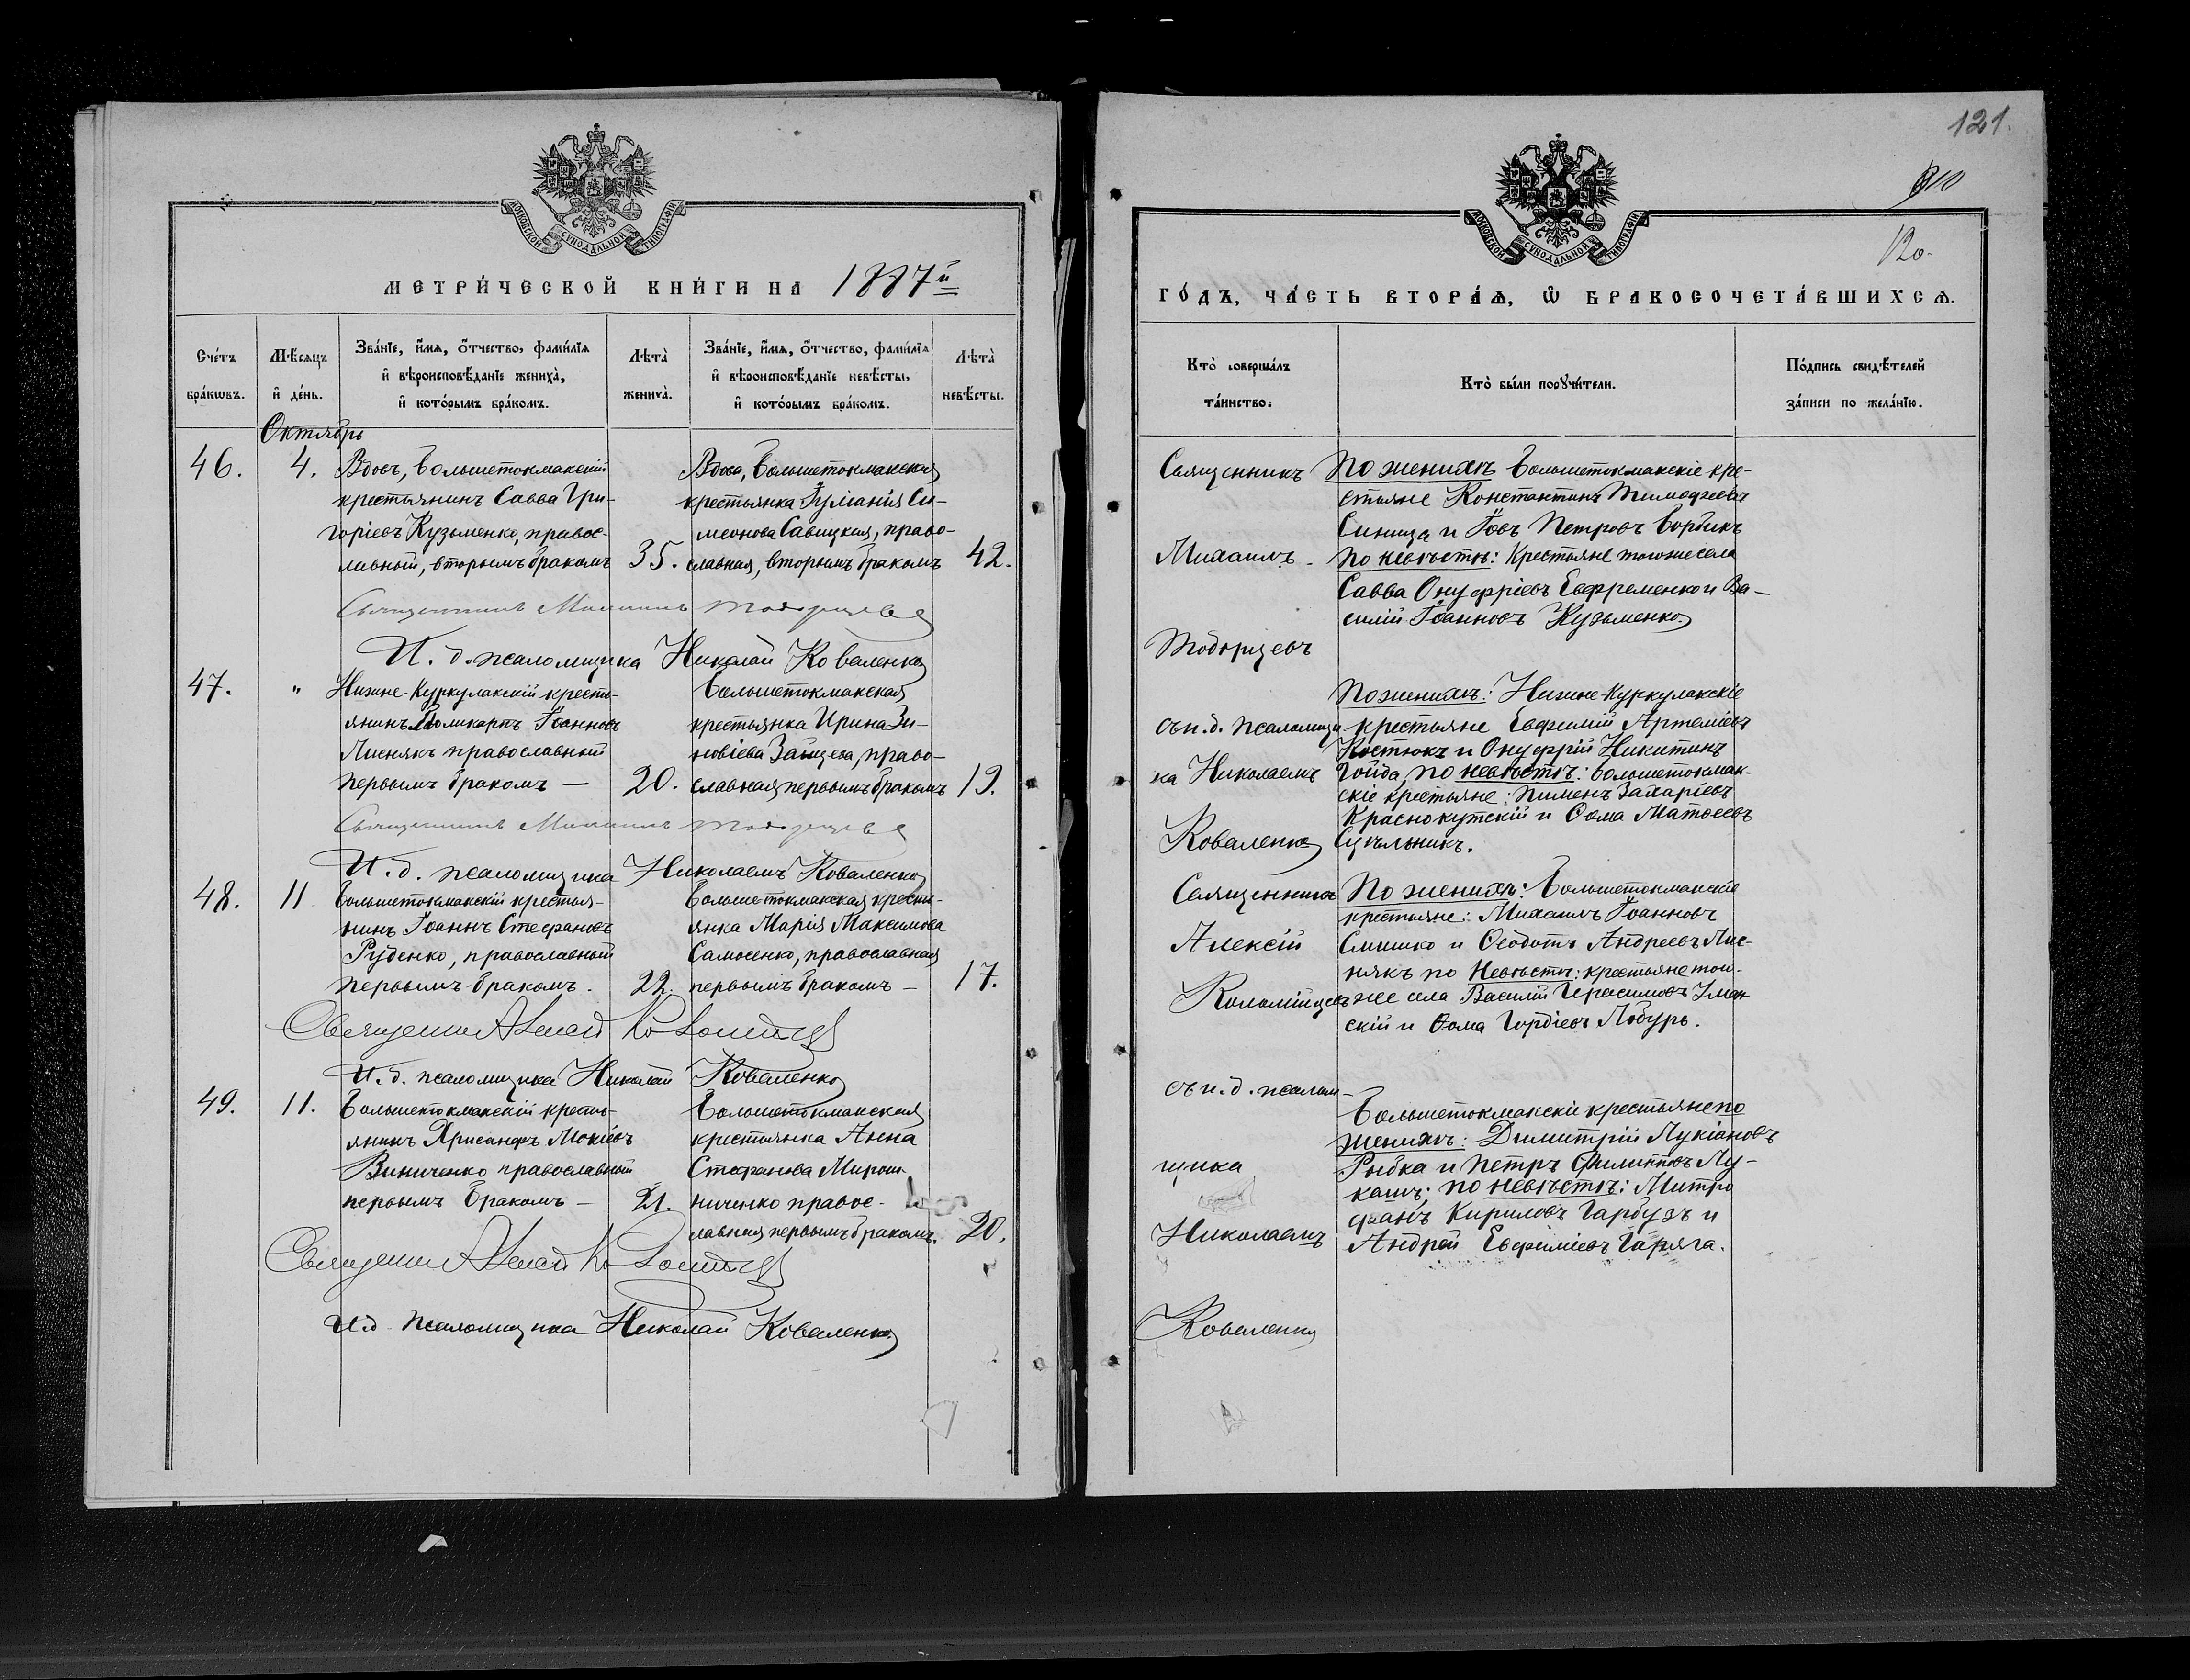 МОСКОВСКОЙ СУНОДАЛЬНОЙ ТИПОГРАФІИ
МЕТРИ́ЧЕСКОЙ КНИ́ГИ НА 1887й
Сче́тъ бра́кѡвъ.
Мѣ́сяцъ и҆ де́нь.
Зва́нїе, и҆́мѧ, ѻ҆́тчество, фами́лїѧ
и҆ вѣроисповѣ́данїе жениха̀,
и҆ кото́рымъ бра́комъ.
Лѣта̀ жениха̀.
Зва́нїе, и҆́мѧ, ѻ҆́тчество, фами́лїѧ
и҆ вѣроисповѣ́данїе невѣ́сты,
и҆ кото́рымъ бра́комъ.
Лѣта̀ невѣ́сты.
Октябрь
46.
4.
Вдовъ, Большетокмакскій
крестьянинъ Савва Гри-
горіевъ Кузьменко, правос-
лавный, вторымъ бракомъ
35.
Вдова, Большетокмакская
крестьянка Іуліанія Си-
меонова Савицкая, право-
славная, вторымъ бракомъ
42.
Священникъ Михаилъ Тодорцевъ
И. д. псаломщика Николай Коваленко
47.
"
Нижне-Куркулакскій кресть-
янинъ Поликарпъ Іоанновъ
Лиснякъ православный
первымъ бракомъ —
20.
Большетокмакская
крестьянка Ирина Зи-
новіева Зайцева, право-
славная первымъ бракомъ
19.
Священникъ Михаилъ Тодорцевъ
И. д. псаломщика Николаемъ Коваленко
48.
11
Большетокмакскій крестья-
нинъ Іоаннъ Стефановъ
Руденко, православный
первымъ бракомъ.
22.
Большетокмакская кресть-
янка Марія Максимова
Самосенко, православная
первымъ бракомъ —
17.
Священникъ Алексій Коломійцевъ
И. д. псаломщика Николай Коваленко
49.
11.
Большетокмакскій кресть-
янинъ Хрисанфъ Мокіевъ
Виниченко православный
первымъ бракомъ —
21.
Большетокмакская
крестьянка Анна
Стефанова Мирош-
ниченко правос-
лавная первымъ бракомъ.
20.
Священникъ Алексій Коломійцевъ
И. д псаломщика Николай Коваленко
121.
120.
МОСКОВСКОЙ СУНОДАЛЬНОЙ ТИПОГРАФІИ
ГО́ДЪ, ЧА́СТЬ ВТОРА́Ѧ, Ѽ БРАКОСОЧЕТА́ВШИХСѦ.
Кто̀ соверша́лъ та́инство.
Кто̀ бы́ли порꙋчи́тели.
По́дпись свидѣ́телей
за́писи по жела́нїю.
Священникъ
Михаилъ
Тодорцевъ
съ и. д. псаломщи
ка Николаемъ
Коваленко
По женихѣ Большетокмакскіе кре-
стьяне Константинъ Тимофеевъ
Синица и Іовъ Петровъ Борбикъ
По невѣстѣ: Крестьяне тогоже села
Савва Онуфріевъ Евфременко и Ва-
силій Іоанновъ Кузьменко
По женихѣ: Нижне-Куркулакскіе
крестьяне Евфимій Артеміевъ
Костюкъ и Онуфрій Никитинъ
Гойда, по невѣстѣ: большетокмак-
скіе крестьяне: Пименъ Захаріевъ
Краснокутскій и Ѳома Матѳеевъ
Сугильникъ.
Священникъ
Алексій
Коломійцевъ
съ и. д. псалом-
щика
Николаемъ
Коваленко
По женихѣ: Большетокмакскіе
крестьяне: Михаилъ Іоанновъ
Смишко и Ѳеодотъ Андреевъ Лис-
някъ по Невѣстѣ: крестьяне той-
же села Василій Герасимовъ Уман
скій и Ѳома Гордіевъ Лобурь.
Большетокмакскіе крестьяне по
женихѣ: Димитрій Лукіановъ
Рыбка и Петръ Филиповъ Лу-
кашъ; по невѣстѣ: Митро
фанъ Кириловъ Гарбузъ и
Андрей Евфиміевъ Гаряга.